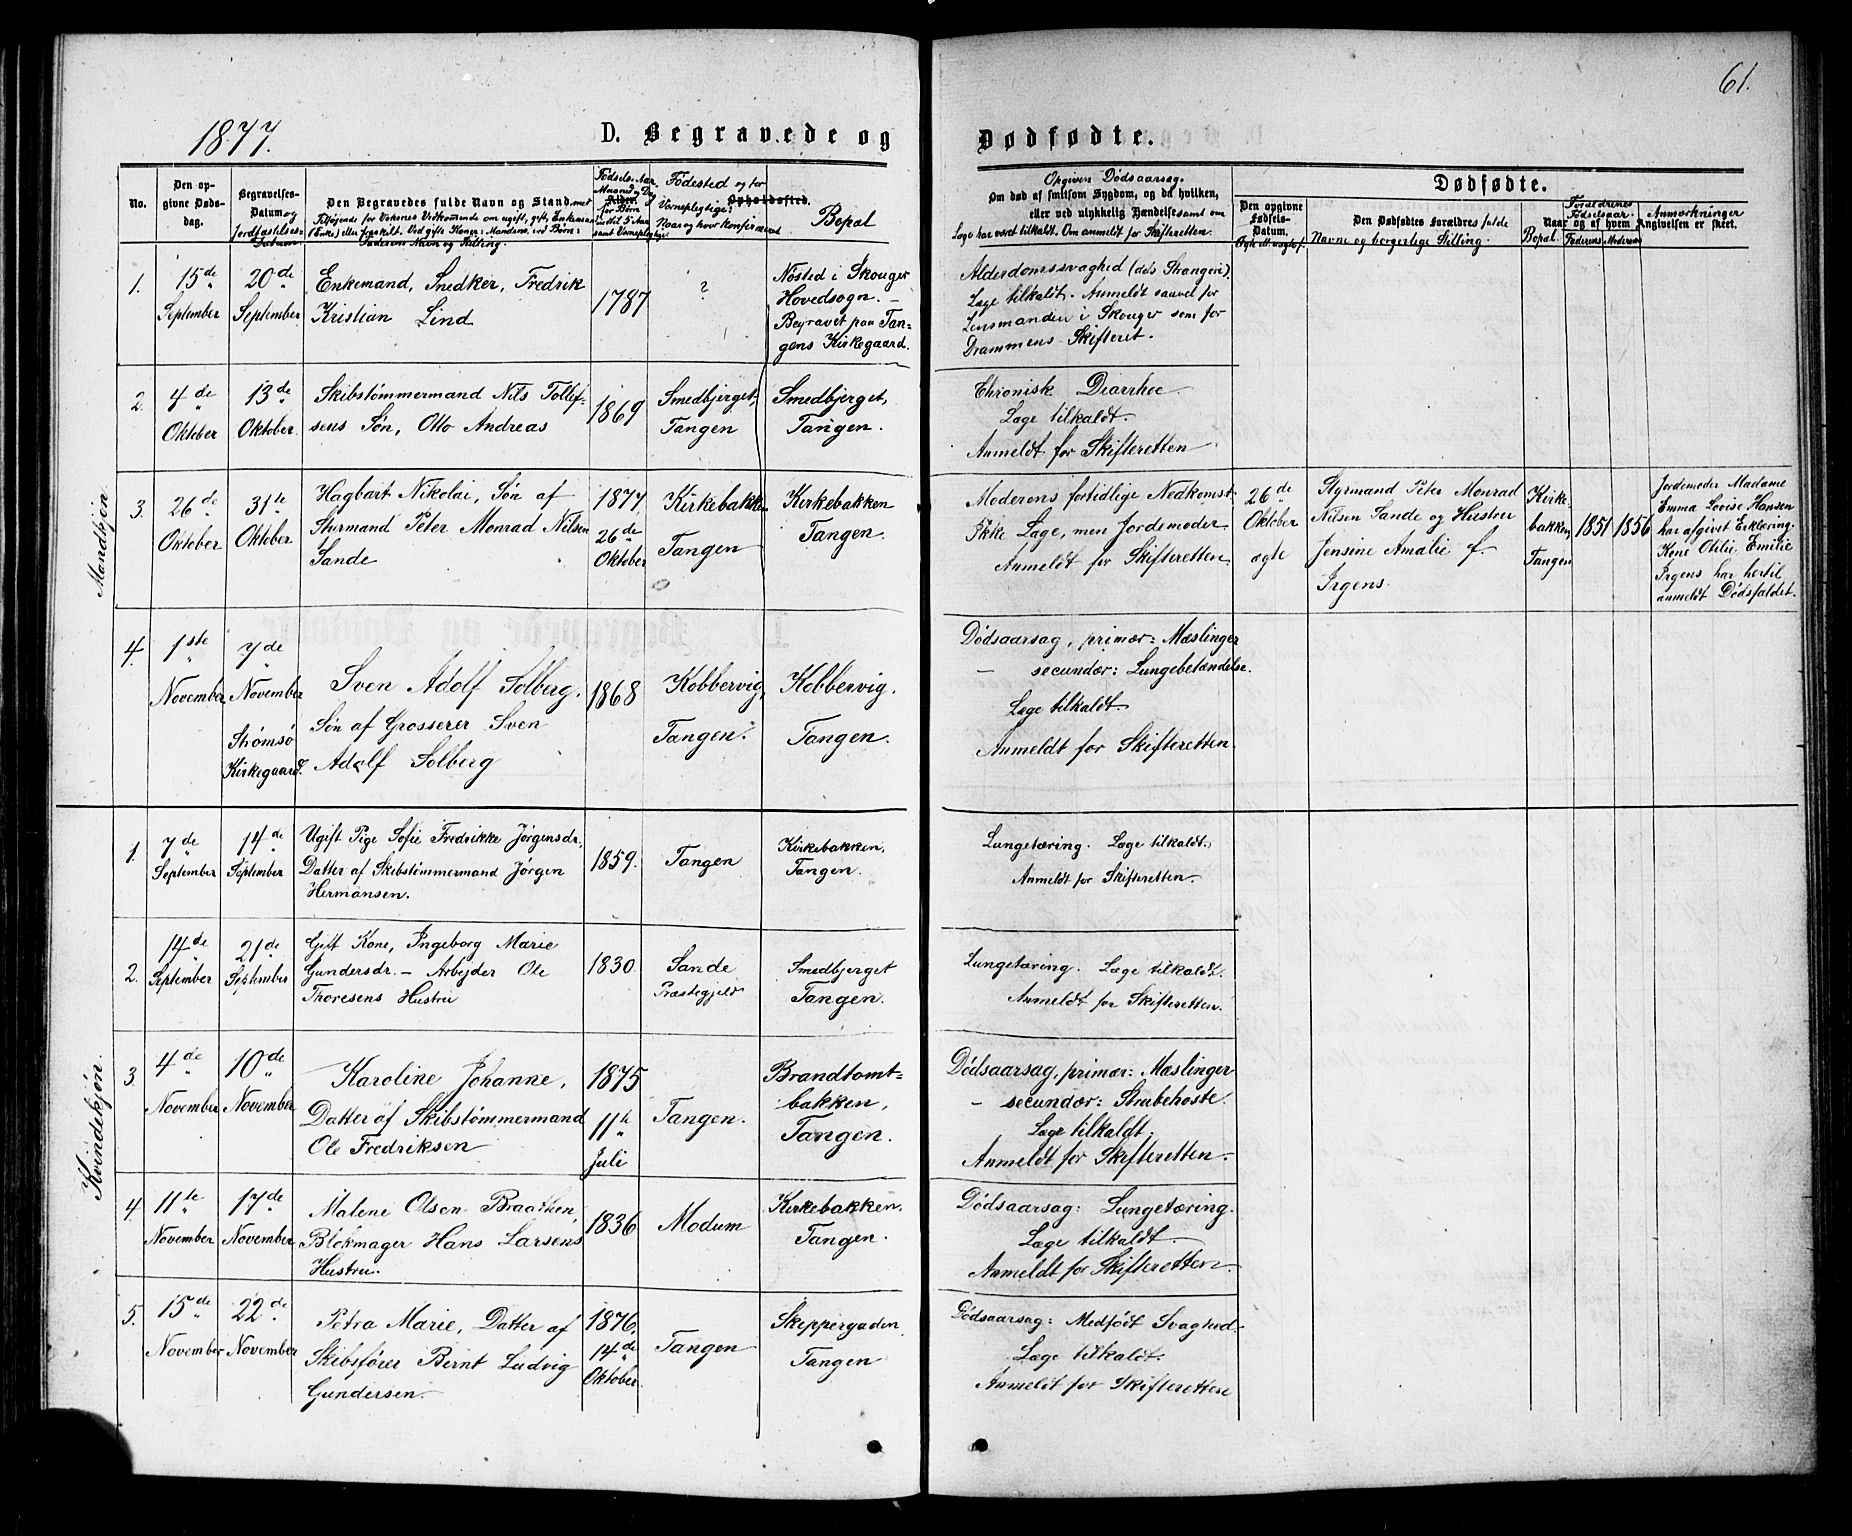 61.
1877.
D. Begravede og Dødfødte.
No.
Den op-
givne Døds-
dag.
Begravelses-
Datum og
Jordfæstelses-
Datum
Den Begravedes fulde Navn og Stand med
Fødsels-Aar
Fødested og for
Værnepligtige:
Naar og hvor konfirmeret
Opholdssted.
Bopæl
Opgiven Dødsaarsag.
Om død af smitsom Sygdom, og da hvilken,
eller ved ulykkelig Hændelse samt om
Læge har været tilkaldt. Om anmeldt for Skifteretten.
Dødfødte.
Den opgivne
Fødsels-
Datum.
Ægte ell. uægte f.
Den Dødfødtes Forældres fulde
Navne og borgerlige Stilling.
Bopæl.
Forældrenes
Fødselsaar.
Naar og af hvem
Faderens Moderens
Anmærkninger
Angivelsen er skeet.
Mandkjøn
1.
15de
September
20de
September
Enkemand, Snedker, Fredrik
Kristian Lind
1787
?
Nøsted i Skouger
Hovedsogn. –
Begravet paa Tan-
gens Kirkegaard.
Alderdomssvaghed (dels Skangeri).
Læge tilkaldt. Anmeldt saavel for
Lensmanden i Skouger som for
Drammens Skifteret.
2.
4de
Oktober
13de
Oktober.
Skibstømmermand Nils Tollef-
sens Søn, Otto Andreas
1869
Smedbjerget,
Tangen
Smedbjerget,
Tangen.
Chronisk Diarrhoe.
Læge tilkaldt.
Anmeldt for Skifteretten
3.
26de
Oktober
31te
Oktober
Hagbart Nikolai, Søn af
Styrmand Peter Monrad Nilsen
Sande
1877
26de
Oktober
Kirkebakken
Tangen
Kirkebakken
Tangen.
Moderens fortidlige Nedkomst
Ikke Læge, men Jordemoder
Anmeldt for Skifteretten
26de
Oktober
ægte
Styrmand Peter Monrad
Nilsen Sande og Hustru
Jensine Amalie f.
Irgens
Kirke-
bakken
Tangen
1851
1856
Jordemoder Madame
Emma Lovise Hansen
har afgivet Erklæring.
Kone Otilie Emilie
Irgens har hertil
anmeldt Dødsfaldet.
4.
1ste
November
7de
November
Strømsø
Kirkegaard.
Sven Adolf Solberg.
Søn af Grosserer Sven
Adolf Solberg
1868
Kobbervig,
Tangen.
Kobbervig.
Tangen.
Dødsaarsag, primær: Mæslinger
– secundær: Lungebetændelse.
Læge tilkaldt.
Anmeldt for Skifteretten.
Kvindekjøn.
1.
7de
September
14de
September
Ugift Pige Sofie Fredrikke Jørgensdr.
Datter af Skibstømmermand Jørgen
Hermansen.
1859.
Tangen
Kirkebakken,
Tangen.
Lungetæring. Læge tilkaldt.
Anmeldt for Skifteretten.
2.
14de
September
21de
September
Gift Kone, Ingeborg Marie
Gundersdr. – Arbejder Ole
Thoresens Hustru
1830.
Sande
Præstegjeld
Smedbjerget
Tangen.
Lungetæring. Læge tilkaldt.
Anmeldt for Skifteretten.
3
4de
November
10de
November
Karoline Johanne,
Datter af Skibstømmermand
Ole Fredriksen
1875
11te
Juli
Tangen.
Brandtomt-
bakken,
Tangen.
Dødsaarsag, primær: Mæslinger
– secundær: Strubehoste.
Læge tilkaldt.
Anmeldt for Skifteretten.
4
11te
November
17de
November
Malene Olsen Braathen,
Blokmager Hans Larsens
Hustru.
1836
Modum
Kirkebakken.
Tangen.
Dødsaarsag: Lungetæring.
Læge tilkaldt
Anmeldt for Skifteretten.
5.
15de
November
22de
November
Petra Marie, Datter af
Skibsfører Bernt Ludvig
Gundersen.
1876.
14de
Oktober.
Tangen
Skeppergaden
Tangen
Dødsaarsag: Medfødt Svaghed.
Læge tilkaldt.
Anmeldt for Skifteretten